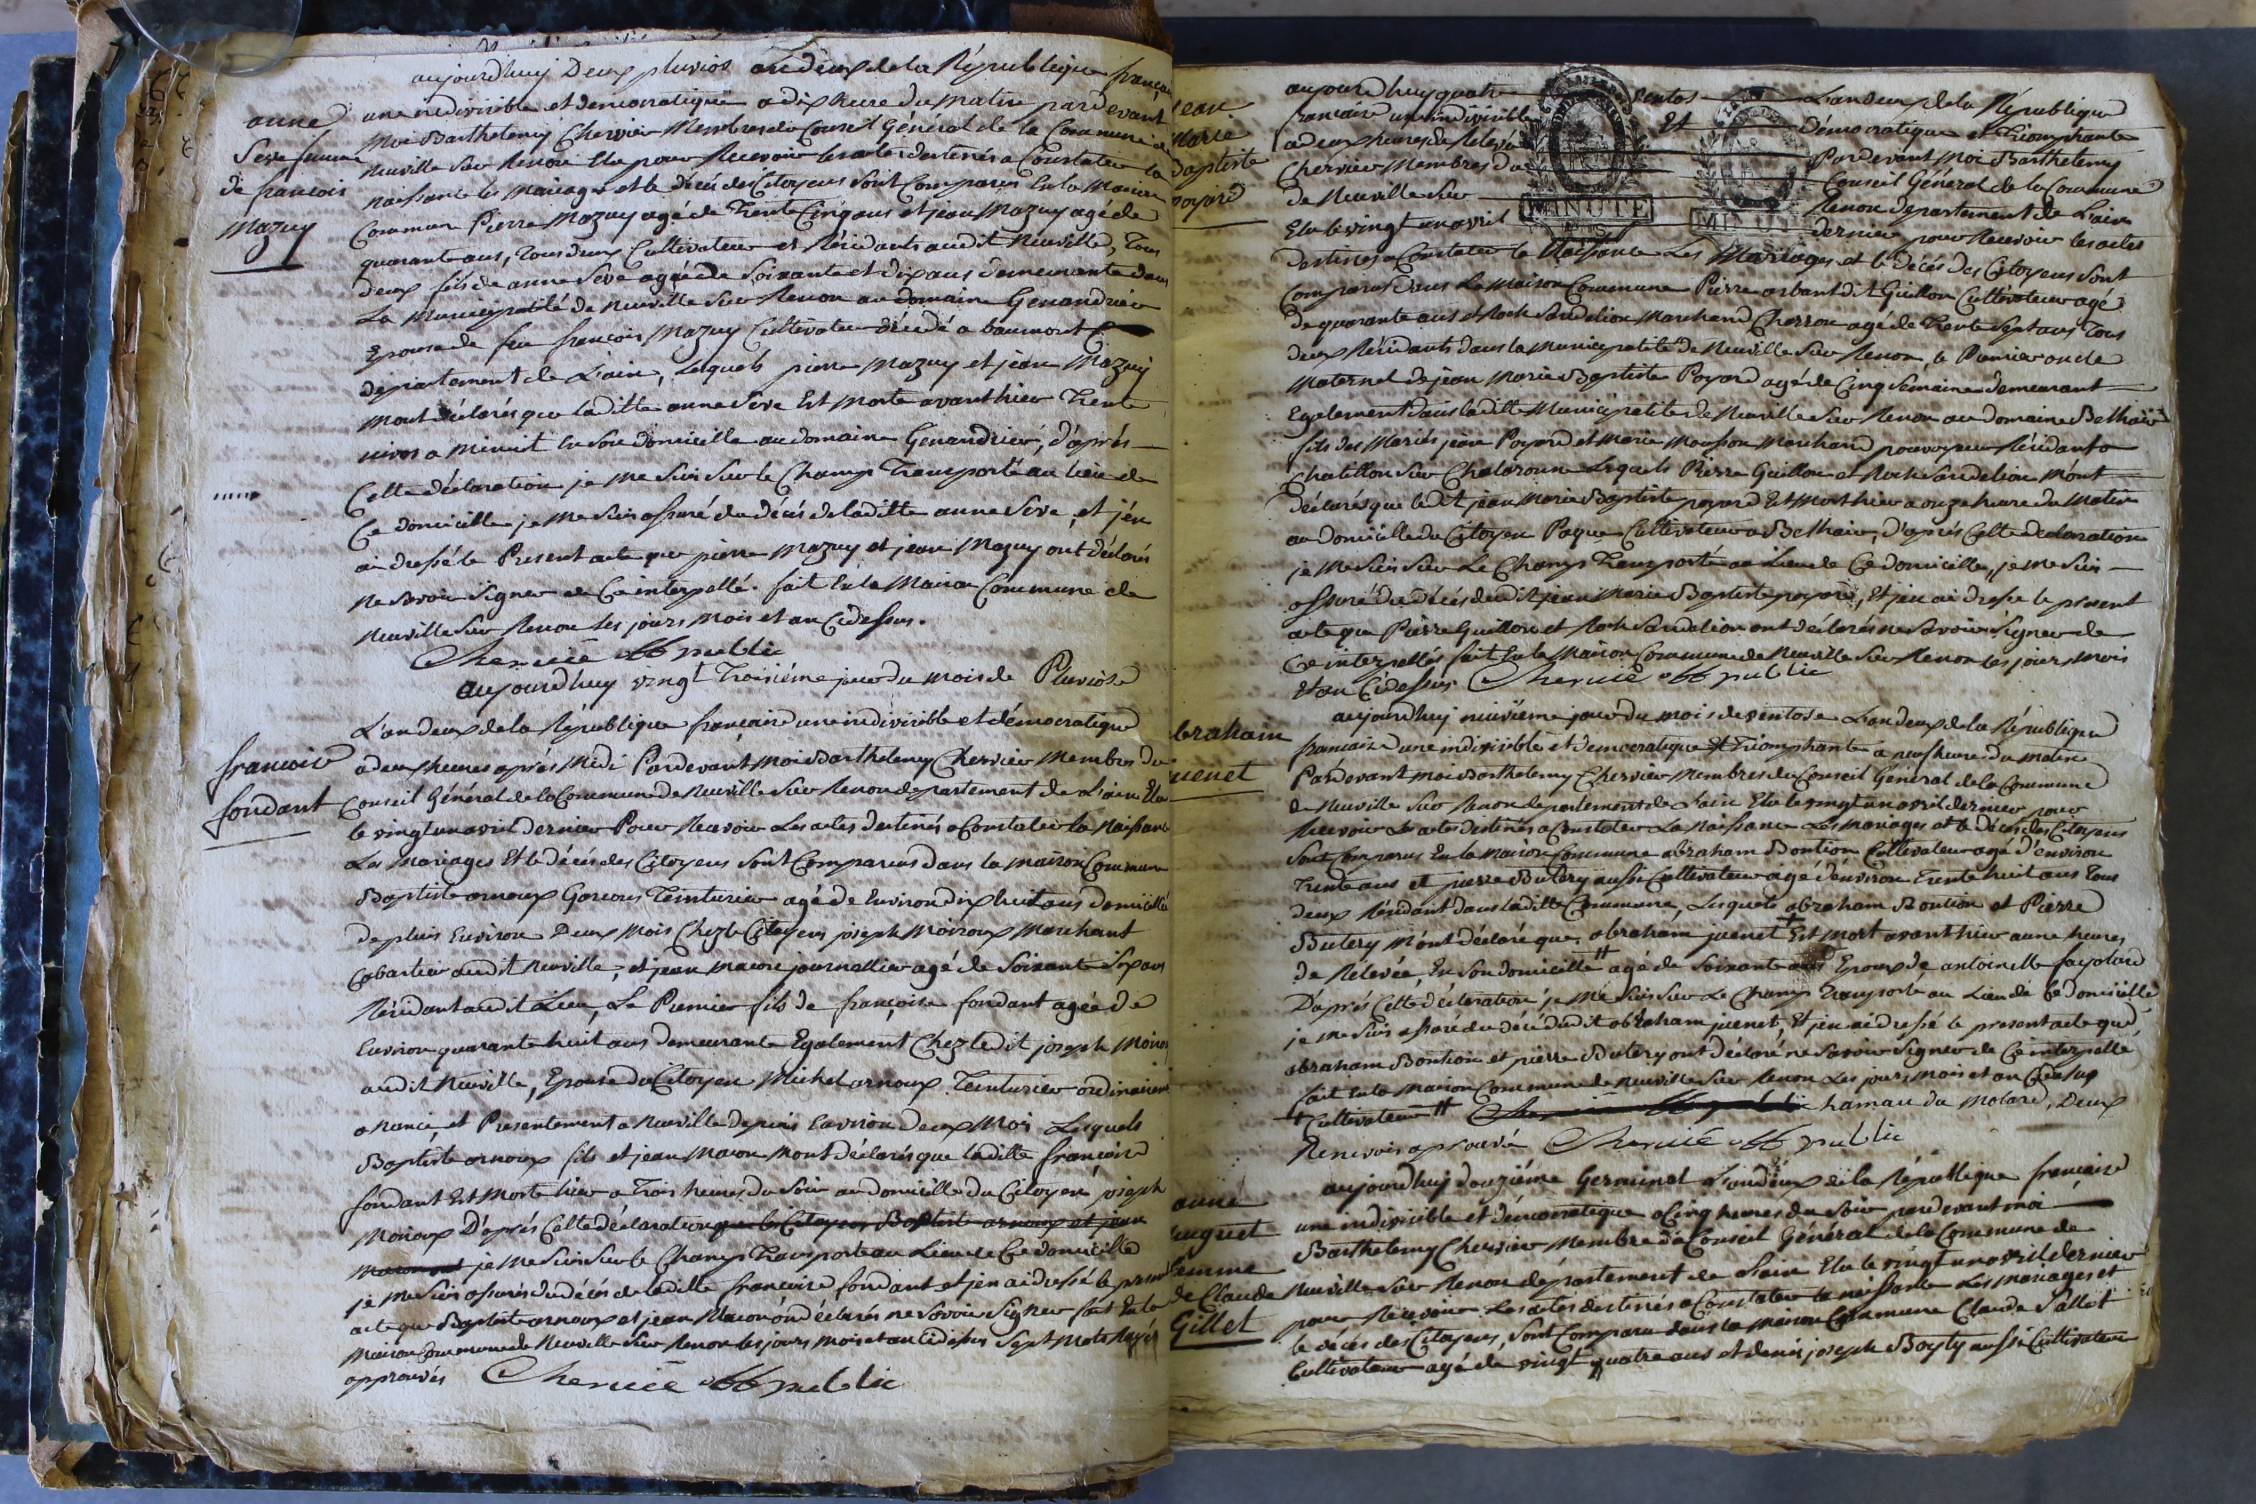 aujourdhuy Deux pluvios an deux de la République françai
anne
Seve femme
de francois
Mazuy
une indivisible et democratique a dix heure du matin par devant
Moi Barthelemy Chervier Membres du Conseil Général de la Commune de
neuville Sur Renon Elu pour Recevoir les actes destinés a Constater la
naissance les mariages et le décés des Citoyens sont Comparus En la Maison
Commune Pierre Mazuy agé de Trente Cinq ans et jean Mazuy agé de
quarante ans, Tous deux Cultivateur et Résidants audit Neuville, Tous
deux fils de anne Seve agée de Soixante et dix ans demeurante dans
La Municipalité de neuville Sur Renon au domaine Genandrier
Epouse de feu françois Mazuy Cultivateur décédé a baumont
departement de L'ain, Lesquels pierre Mazuy et jean Mazuy
mont déclarés que laditte anne Seve Est Morte avant hier Trente
nivos a Minuit En son domicille au domaine Genandrier, d'aprés
Cette déclaration je me Suis Sur le Champ Transporté au lieu de
Ce domicille je me Suis assuré du décés de laditte anne Seve, et j'en
ai dressé le Present acte que pierre Mazuy et jean Mazuy ont déclarés
ne Savoir Signer de Ce interpellé. fait En la Maison Commune de
Neuville Sur Renon les jours mois et an Cidessus.
Chervié off public
aujourdhuy vingt Troisiéme jour du mois de Pluviose
francoise
fondant
L'an deux de la République françaisе une indivisible et démocratique
a deux heures aprés Midi Pardevant Moi Barthelemy Chervier Membres du
Conseil Général de la Commune de Neuville Sur Renon departement de L'ain Elu
le vingt un avril Dernier Pour Recevoir Les actes destinés a Constater la Naissance
Les Mariages Et le décés des Citoyens Sont Comparus dans la maison Commune
Baptiste arnoux Garcons Teinturier agé de Environ dix huit ans domicillié
depluis Environ Deux mois Chez le Citoyens joseph Moiroux Marchant
Cabartier audit neuville, et jean macon journallier agé de Soixante Six ans
Résidant audit Lieu, Le Premier fils de françoise fondant agée de
Environ quarante huit ans demeurante Egalement Chez ledit joseph Moirou
audit Neuville, Epouse du Citoyen Michel arnoux Teinturier ordinairem
a nance, et Presentement a Neuville depuis Environ deux Mois Lesquels
Baptiste arnoux fils et jean Macon Mont déclarés que laditte françoise
fondant Est Morte hier a Trois heures du Soir au domicille du Citoyen joseph
Moiroux D'aprés Cette déclaration que les Citoyens Baptiste arnoux et jean
Macon ont je me Suis Sur le Champ Transporté au Lieu de Ce domicille
je me Suis assurés du décés de laditte francoise fondant et jen ai dressé le present
acte que Baptiste arnoux et jean Macon on déclarés ne Savoir Signer fait En la
Maison Commune de Neuville Sur Renon les jours mois et an Cidessus Sept Mots Rayés
approuvés Chervié off public
jean
Marie
Baptiste
poyard
aujourdhuy quatre ventos L'an deux de la République
francaise une indivisible Et démocratique et Triomphante
a deux heures de Relevé Pardevant Moi Barthelemy
Chervier Membres du Conseil Général de la Commune
de Neuville Sur Renon departement de L'ain
Elu le vingt un avril dernier pour Recevoir les actes
MINUTE
MINUTE
destinés a Constater la Naissance Les Mariages et le décés des Citoyens Sont
Comparus Dans La Maison Commune Pierre arbant dit Guillon Cultivateur agé
de quarante ans et Roch Sandelion Marchand Charron agé de Trente Sept ans Tous
deux Résidants dans la municipalité de Neuville Sur Renon, le Premier oncle
Maternel de jean Marie Baptiste Poyard agé de Cinq Semaine demeurant
Egalement dans laditte Municipalité de Neuville Sur Renon au domaine Bethaix
fils des Mariés jean Poyard et Marie Mousson Marchand pourvoyeur Résidant a
Chatillon Sur Chalaronne Lesquels Pierre Guillon et Roch Sandelion Mont
déclarés que ledit jean Marie Baptiste poyard Est Mort hier a onze heure du Matin
au Domicille du Citoyen Paque Cultivateur a Bethaix, D'aprés Cette déclaration
je me Suis Sur Le Champ Transporté au Lieu de Ce domicille, je me Suis
assuré du décés dudit jean Marie Baptiste poyard, Et j'en ai dressé le présent
acte que Pierre Guillon et Roch Sandelion ont déclarés ne Savoir Signer de
Ce interpellés fait En la Maison Commune de Neuville Sur Renon les jours, Mois
et an Cidessus Chervié off public
braham
uenet
aujourdhuy nuiviéme jour du mois de ventose L'an deux de la République
francaise une indivisible et democratique Et Triomphante a neuf heures du matin
Pardevant moi Barthelemy Chervier Membres du Conseil Général de la Commune
de Neuville Sur Renon departement de L'ain Elu le vingt un avril dernier pour
Recevoir Les actes destinés a Constater La Naissance Les Mariages et le décés des Citoyens
Sont Comparus En la Maison Commune abraham Bontion Cultivateur agé d'environ
Trente ans et pierre Butery aussi Cultivateur agé d'environ Trente huit ans Tous
deux Résidant dans laditte Commune, Lesquels abraham Bontion et Pierre
Butery m'ont déclaré que abraham juenet + Est Mort avant hier a une heures
de Relevée, En son domicille # agé de Soixante ans Epoux de antoinette fayolard
D'aprés Cette déclaration, je me Suis Sur Le Champ Transporté au Lieu de Ce domicille
je me Suis assuré du décé dudit abraham juenet, Et jen ai dressé le present acte que
abraham Bontion et pierre Butery ont déclaré ne Savoir Signer de Ce interpellé
fait En la Maison Commune de Neuville Sur Renon Les jours, mois et an Cidessus
+ Cultivateur # Chervié off public hamau du molard, Deux
Renvois aprouvés Chervié off public
anne
uguet
femme
de Claude
Gillet
aujourdhuy douziéme Germinal L'an deux de la République française
une indivisible et démocratique a Cinq heures du Soir pardevant moi
Barthelemy Chervier Membre du Conseil Général de la Commune de
Neuville Sur Renon département de L'ain Elu le vingt un avril dernier
pour Recevoir Les actes destinés a Constater la naissance Les Mariages et
le décés des Citoyens, Sont Comparu dans la maison Commune Claude Pallet
Cultivateur agé de vingt quatre ans et denis joseph Boysty aussi Cultivateur